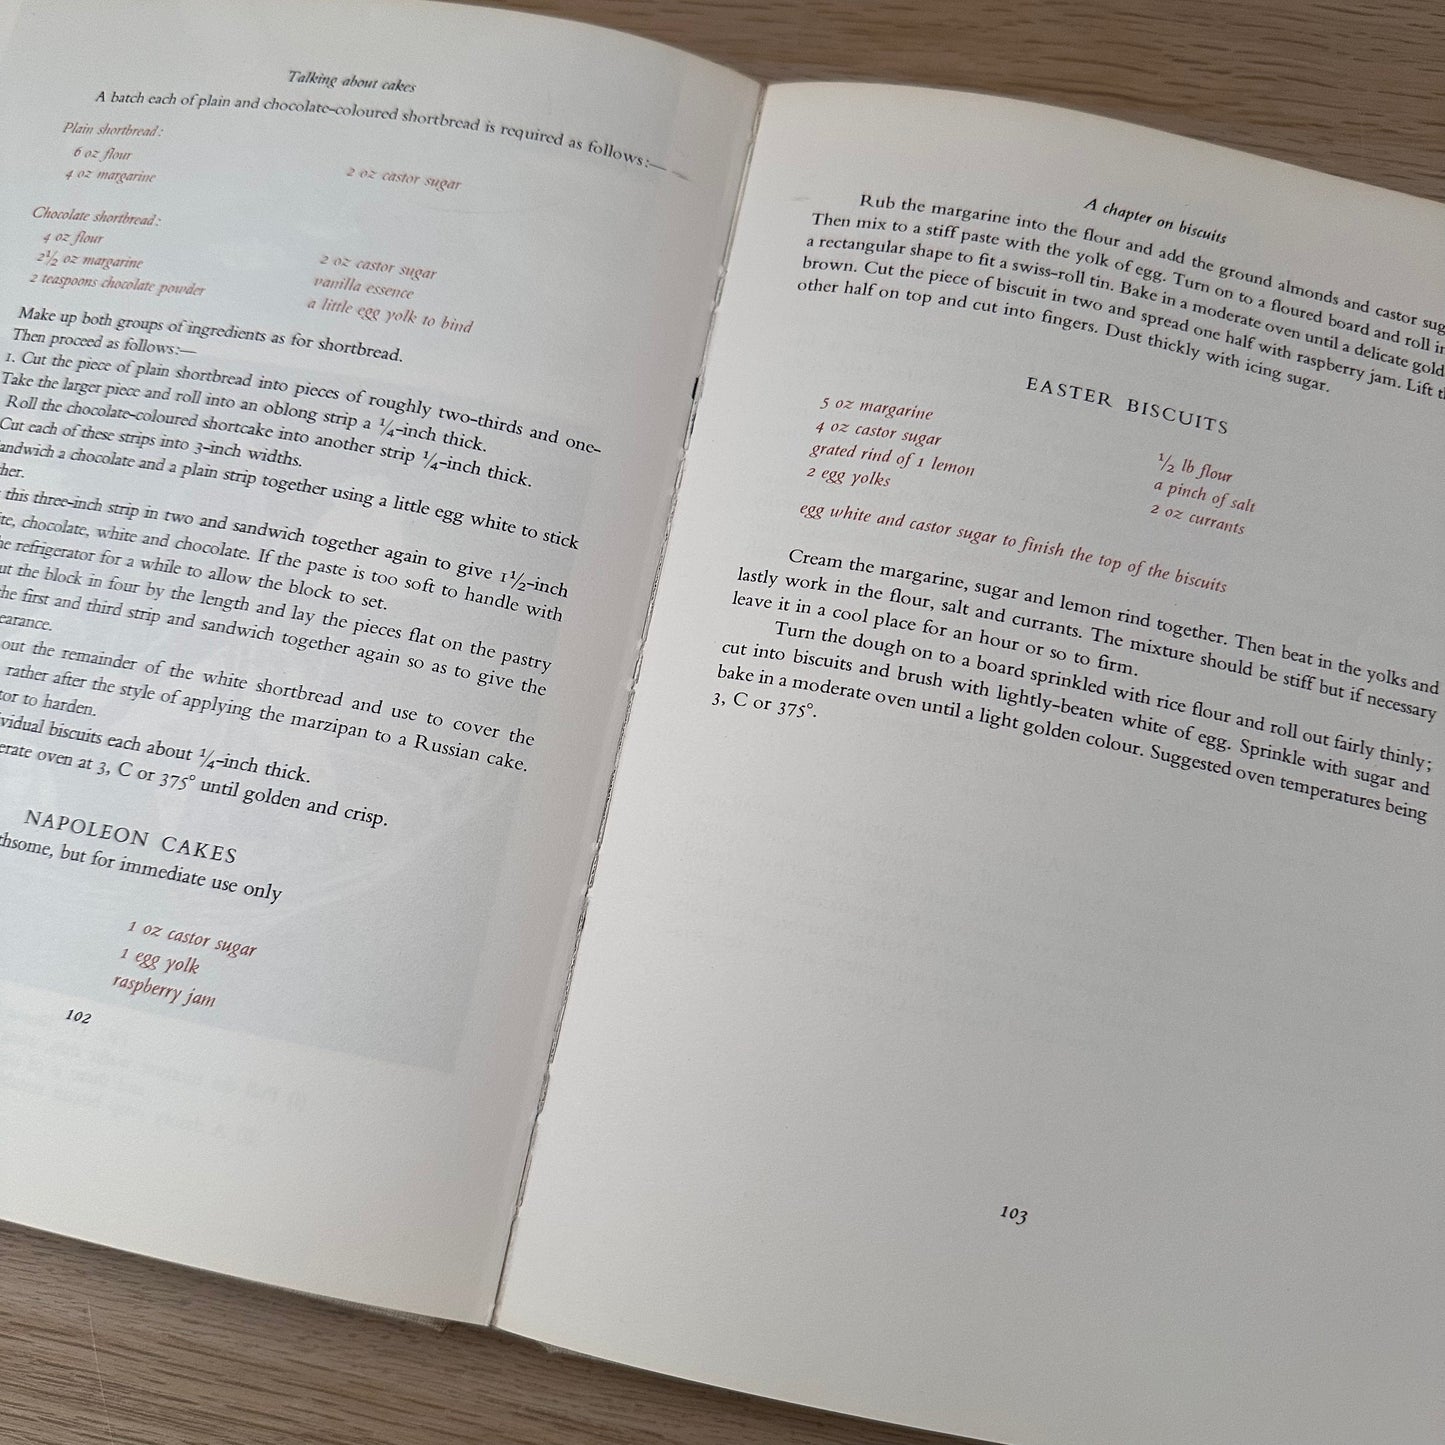 Talking about cakes
A batch each of plain and chocolate-coloured shortbread is required as follows:—
Plain shortbread:
6 oz flour
4 oz margarine
2 oz castor sugar
Chocolate shortbread:
4 oz flour
2½ oz margarine
2 teaspoons chocolate powder
2 oz castor sugar
vanilla essence
a little egg yolk to bind
Make up both groups of ingredients as for shortbread.
Then proceed as follows:—
1. Cut the piece of plain shortbread into pieces of roughly two-thirds and one-
Take the larger piece and roll into an oblong strip a ¼-inch thick.
Roll the chocolate-coloured shortcake into another strip ¼-inch thick.
Cut each of these strips into 3-inch widths.
andwich a chocolate and a plain strip together using a little egg white to stick
her.
this three-inch strip in two and sandwich together again to give 1½-inch
ite, chocolate, white and chocolate. If the paste is too soft to handle with
he refrigerator for a while to allow the block to set.
ut the block in four by the length and lay the pieces flat on the pastry
the first and third strip and sandwich together again so as to give the
earance.
out the remainder of the white shortbread and use to cover the
rather after the style of applying the marzipan to a Russian cake.
tor to harden.
vidual biscuits each about ¼-inch thick.
erate oven at 3, C or 375° until golden and crisp.
NAPOLEON CAKES
thsome, but for immediate use only
1 oz castor sugar
1 egg yolk
raspberry jam
102
A chapter on biscuits
Rub the margarine into the flour and add the ground almonds and castor sug
Then mix to a stiff paste with the yolk of egg. Turn on to a floured board and roll in
a rectangular shape to fit a swiss-roll tin. Bake in a moderate oven until a delicate gold
brown. Cut the piece of biscuit in two and spread one half with raspberry jam. Lift th
other half on top and cut into fingers. Dust thickly with icing sugar.
EASTER BISCUITS
5 oz margarine
4 oz castor sugar
grated rind of 1 lemon
2 egg yolks
½ lb flour
a pinch of salt
2 oz currants
egg white and castor sugar to finish the top of the biscuits
Cream the margarine, sugar and lemon rind together. Then beat in the yolks and
lastly work in the flour, salt and currants. The mixture should be stiff but if necessary
leave it in a cool place for an hour or so to firm.
Turn the dough on to a board sprinkled with rice flour and roll out fairly thinly;
cut into biscuits and brush with lightly-beaten white of egg. Sprinkle with sugar and
bake in a moderate oven until a light golden colour. Suggested oven temperatures being
3, C or 375°.
103